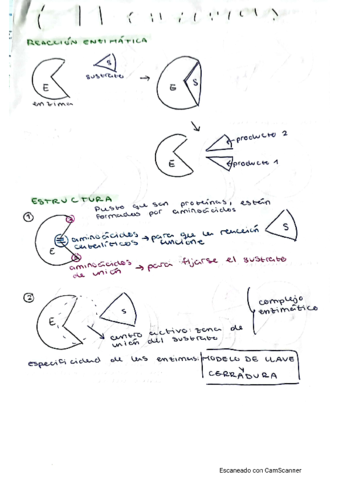 REACCIÓN ENZIMÁTICA
E
enzima
sustrato
S
E
S
E
producto 2
producto 1
ESTRUCTURA
Puesto que son proteínas, están
formadas por aminoácidos
①
E
aminoácidos → para que la reacción
catalíticos funcione
S
aminoácidos → para fijarse el sustrato
de unión
②
E
S
complejo
enzimático
centro activo: zona de
unión del sustrato
especificidad de las enzimas: MODELO DE LLAVE
Y
CERRADURA
Escaneado con CamScanner